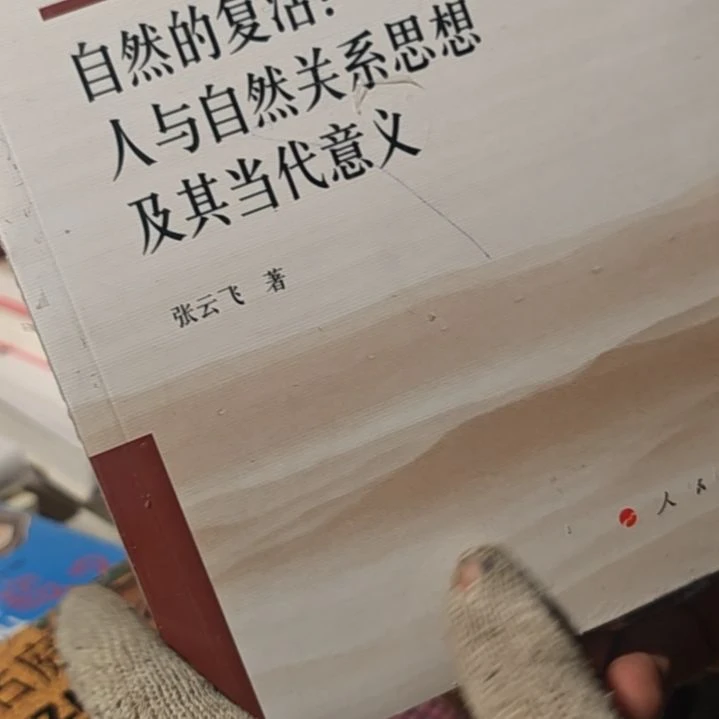 自然的复活：
人与自然关系思想
及其当代意义
张云飞 著
人民